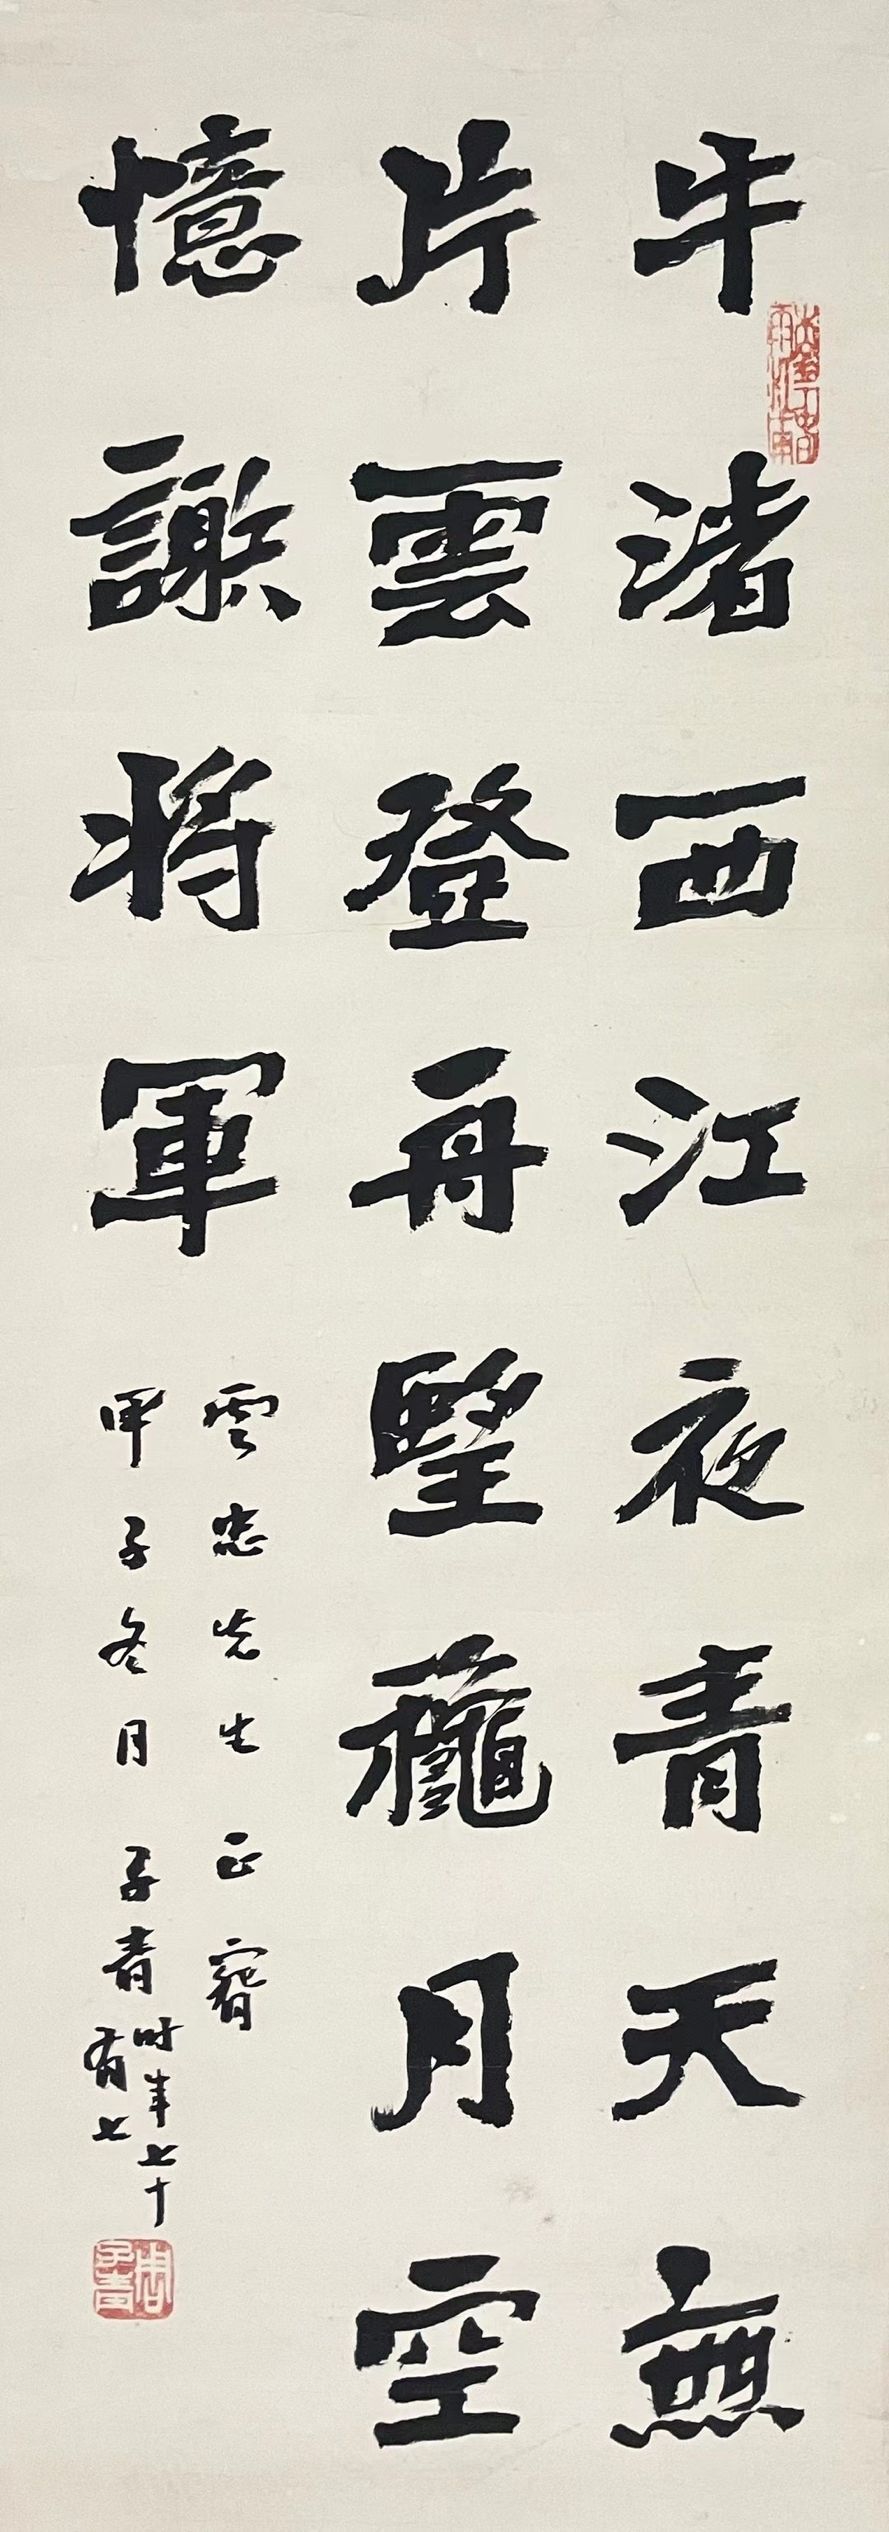 牛渚西江夜青天無
片雲登舟望龝月空
憶謝將軍
雲忠先生正齋
甲子冬月子青時年七十
有七
周子青